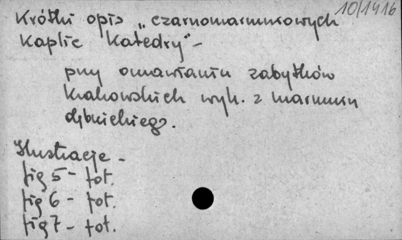 10/1416
Krótki opis „czarnomarmurowych
Kaplic Katedry" -
przy omawianiu zabytków
krakowskich wyk. z marmuru
dębnickiego.
Ilustracje -
fig 5 - fot.
fig 6 - fot.
fig 7 - fot.